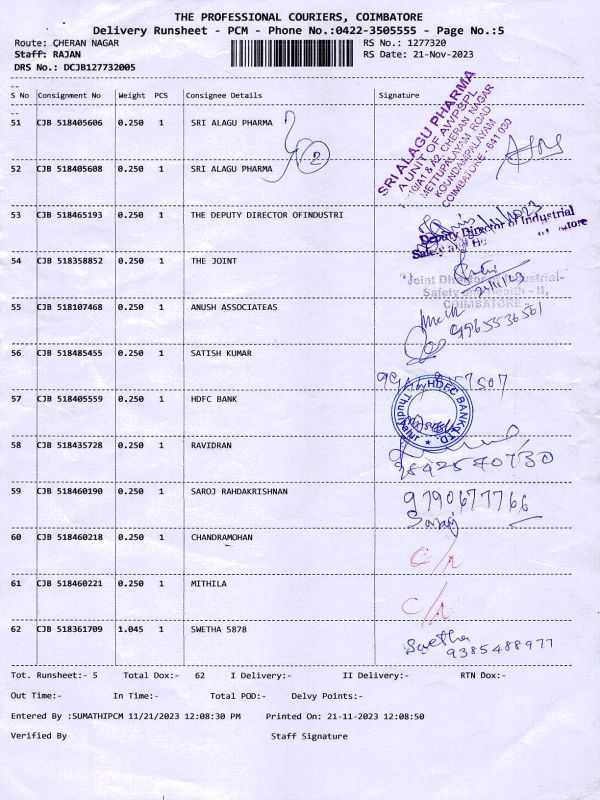 THE PROFESSIONAL COURIERS, COIMBATORE
Delivery Runsheet - PCM - Phone No.:0422-3505555 - Page No.:5
Route: CHERAN NAGAR RS No.: 1277320
Staff: RAJAN RS Date: 21-Nov-2023
DRS No.: DCJB127732005
S No Consignment No Weight PCS Consignee Details Signature
51 CJB 518405606 0.250 1 SRI ALAGU PHARMA
2
SRI ALAGU PHARMA
A UNIT OF AWPSPL
10/A1 & A2, CHERAN NAGAR
METTUPALAYAM ROAD
KOUNDAMPALAYAM
COIMBATORE - 641 030
52 CJB 518405608 0.250 1 SRI ALAGU PHARMA
53 CJB 518465193 0.250 1 THE DEPUTY DIRECTOR OFINDUSTRI
Deputy Director of Industrial
54 CJB 518358852 0.250 1 THE JOINT
21/11/23
Joint Director of Industrial
Safety and Health - II,
COIMBATORE
55 CJB 518107468 0.250 1 ANUSH ASSOCIATEAS
9965536561
56 CJB 518485455 0.250 1 SATISH KUMAR
57 CJB 518405559 0.250 1 HDFC BANK
HDFC BANK LTD.
58 CJB 518435728 0.250 1 RAVIDRAN
9842570730
59 CJB 518460190 0.250 1 SAROJ RAHDAKRISHNAN
9790677766
Saroj
60 CJB 518460218 0.250 1 CHANDRAMOHAN
61 CJB 518460221 0.250 1 MITHILA
62 CJB 518361709 1.045 1 SWETHA 5878
Swetha
9385488977
Tot. Runsheet:- 5 Total Dox:- 62 I Delivery:- II Delivery:- RTN Dox:-
Out Time:- In Time:- Total POD:- Delvy Points:-
Entered By :SUMATHIPCM 11/21/2023 12:08:30 PM Printed On: 21-11-2023 12:08:50
Verified By Staff Signature